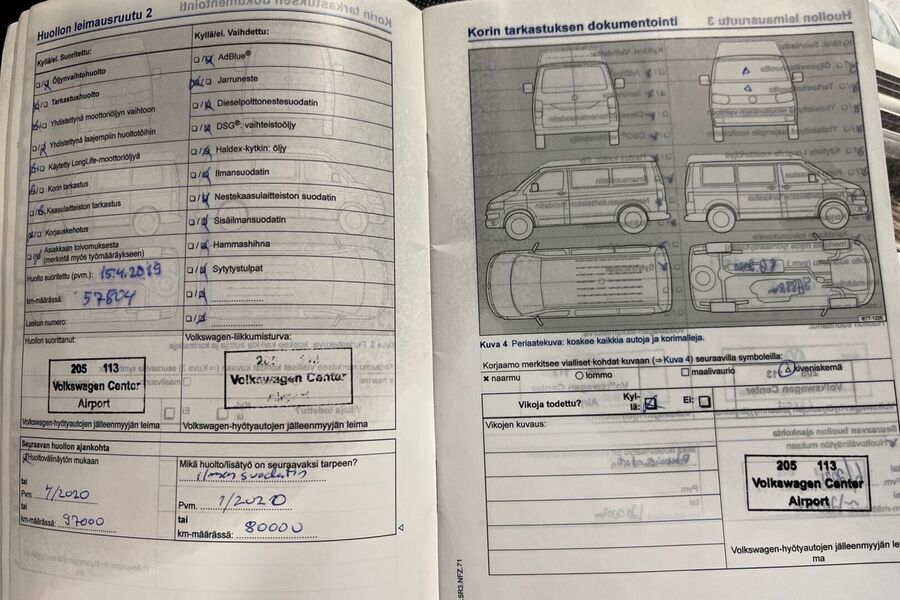 Huollon leimausruutu 2
Kyllä/ei. Suoritettu:
Öljynvaihtohuolto
Tarkastushuolto
Yhdistettynä moottoriöljyn vaihtoon
Yhdistettynä laajempiin huoltotöihin
Käytetty LongLife-moottoriöljyä
Korin tarkastus
Kaasulaitteiston tarkastus
Korjauskehotus
Asiakkaan toivomuksesta
(merkintä myös työmääräykseen)
Huolto suoritettu (pvm.): 15.4.2019
km-määrässä: 57804
Laskun numero:
Huollon suorittanut:
205 113
Volkswagen Center
Airport
Volkswagen-hyötyautojen jälleenmyyjän leima
Kyllä/ei. Vaihdettu:
AdBlue®
Jarruneste
Dieselpolttonestesuodatin
DSG®: vaihteistoöljy
Haldex-kytkin: öljy
Ilmansuodatin
Nestekaasulaitteiston suodatin
Sisäilmansuodatin
Hammashihna
Sytytystulpat
Volkswagen-liikkumisturva:
Volkswagen Center
Volkswagen-hyötyautojen jälleenmyyjän leima
Seuraavan huollon ajankohta
Huoltovälinäytön mukaan
tai
Pvm. 4/2020
tai
km-määrässä: 97000
Mikä huolto/lisätyö on seuraavaksi tarpeen?
ilmansuodatin
Pvm. 1/2020
tai
km-määrässä: 80000
Korin tarkastuksen dokumentointi
Kuva 4 Periaatekuva: koskee kaikkia autoja ja korimalleja.
Korjaamo merkitsee vialliset kohdat kuvaan (⇒ Kuva 4) seuraavilla symboleilla:
x naarmu
lommo
maalivaurio
kiveniskemä
Vikoja todettu?
Kyl-
lä:
Ei:
Vikojen kuvaus:
205 113
Volkswagen Center
Airport
Volkswagen-hyötyautojen jälleenmyyjän lei
ma